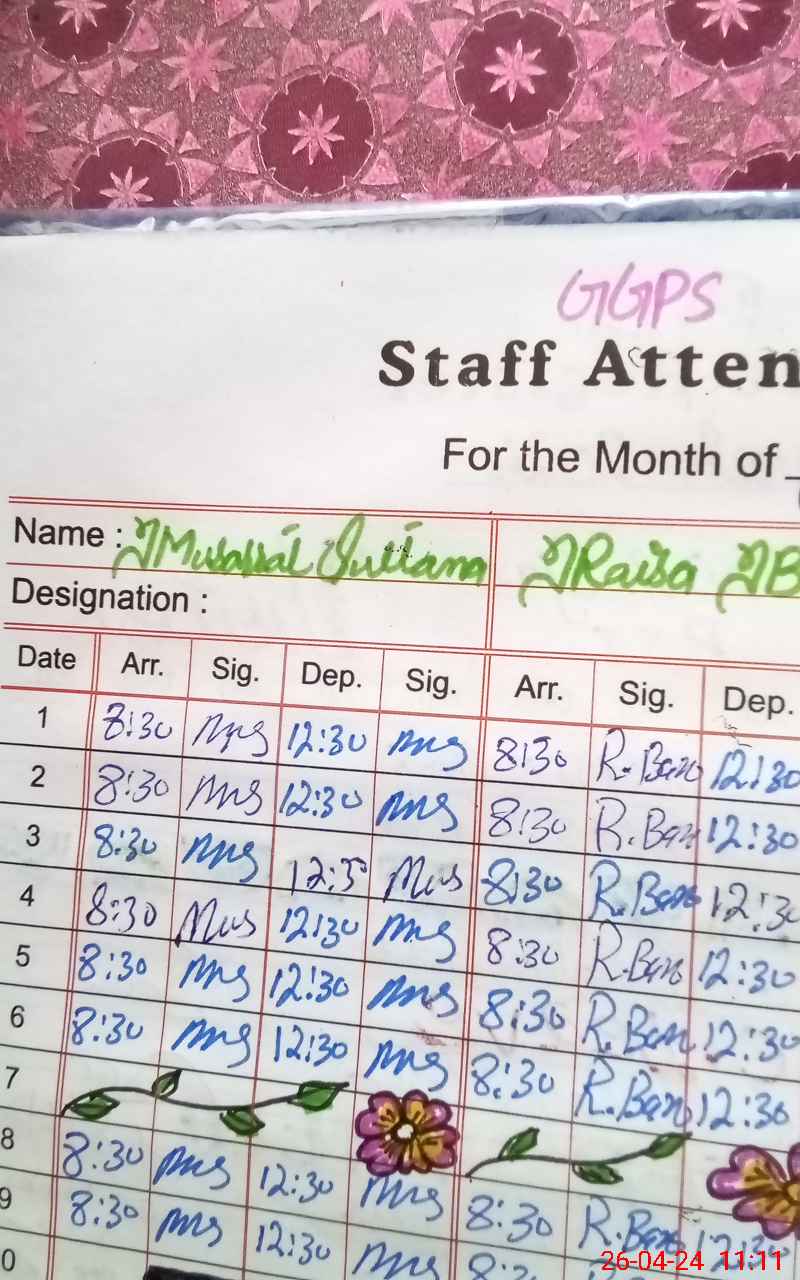 GGPS
Staff Atten
For the Month of
Name : Musarrat Sultana Raisa B
Designation :
Date Arr. Sig. Dep. Sig. Arr. Sig. Dep.
1 8:30 Mus 12:30 Mus 8:30 R.Ban 12:30
2 8:30 Mus 12:30 Mus 8:30 R.Ban 12:30
3 8:30 Mus 12:30 Mus 8:30 R.Ban 12:30
4 8:30 Mus 12:30 Mus 8:30 R.Ban 12:30
5 8:30 Mus 12:30 Mus 8:30 R.Ban 12:30
6 8:30 Mus 12:30 Mus 8:30 R.Ban 12:30
7
8 8:30 Mus 12:30 Mus 8:30 R.Ban 12:30
9 8:30 Mus 12:30 Mus
0
26-04-24 11:11